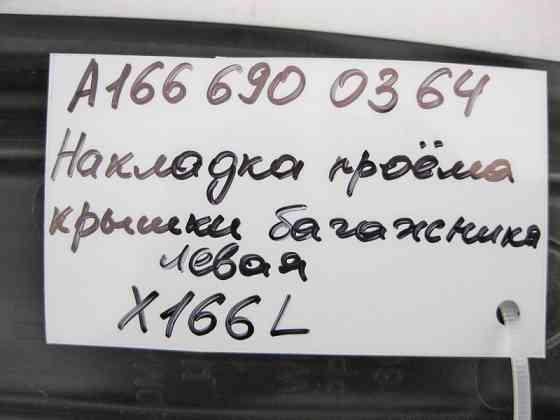 A166 690 03 64
Накладка проёма
крышки багажника
левая
X166 L